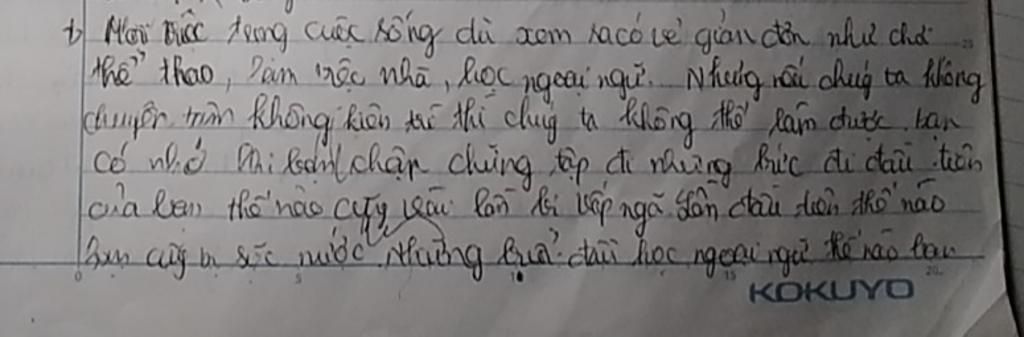 b) Mọi việc trong cuộc sống dù xem ra có vẻ giản đơn như chơi
thể thao, làm việc nhà, học ngoại ngữ. Nhưng nếu chúg ta không
chuyên tâm không kiên trì thì chúg ta không thể làm được. bạn
có nhớ khi bạn chập chững tập đi những bước đi đầu tiên
của bạn thế nào cũg vài lần bị vấp ngã lần đầu tiên thế nào
bạn cũg bị sặc nước những buổi đầu học ngoại ngữ thế nào bạn
0 5 10 15 20
KOKUYO